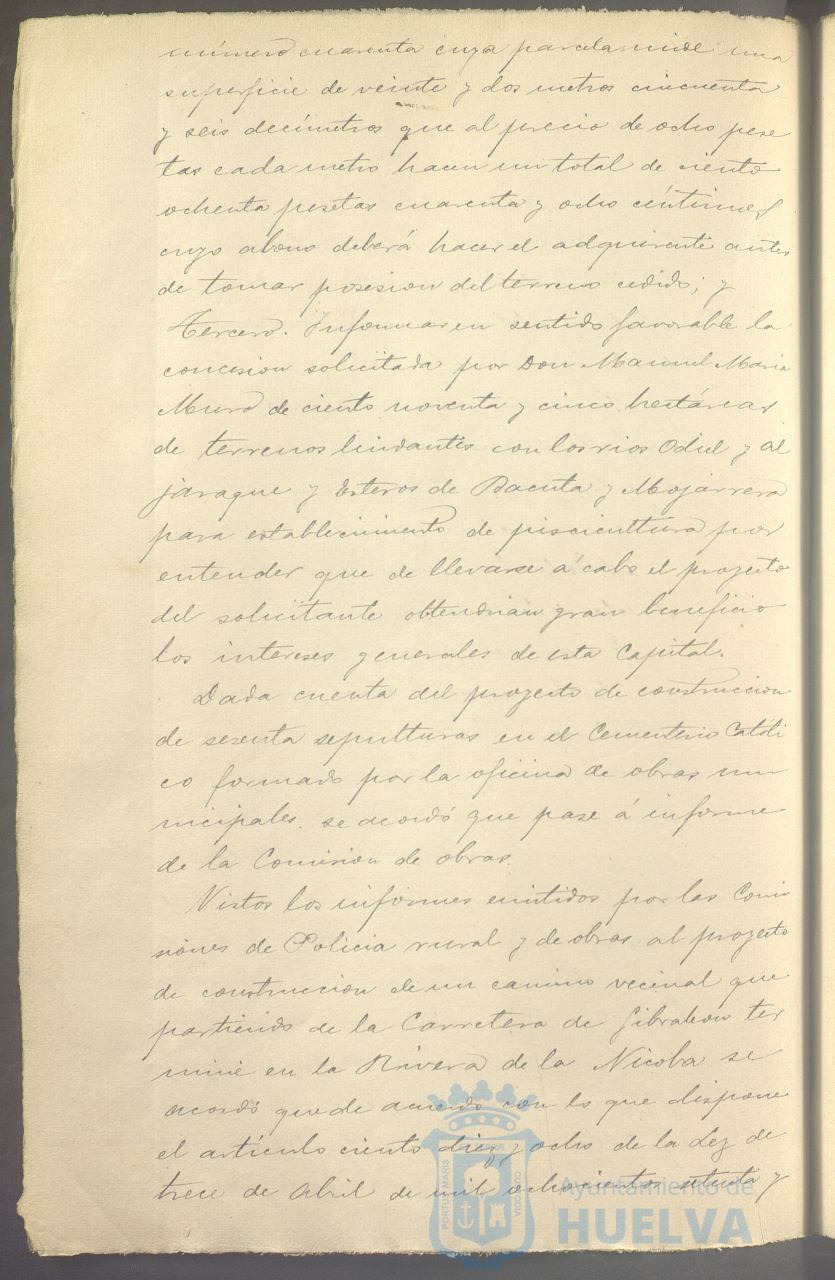 número cuarenta cuya parcela mide una
superficie de veinte y dos metros cincuenta
y seis decímetros que al precio de ocho pese
tas cada metro hacen un total de ciento
ochenta pesetas cuarenta y ocho céntimos
cuyo abono deberá hacer el adquirente antes
de tomar posesion del terreno cedido; y
Tercero. Informar en sentido favorable la
concesion solicitada por Don Manuel Maria
Muro de ciento noventa y cinco hectáreas
de terrenos lindantes con los rios Odiel y al
jaraque y Esteros de Bacuta y Mojarrera
para establecimiento de piscicultura por
entender que de llevarse á cabo el proyecto
del solicitante obtendrian gran beneficio
los intereses generales de esta Capital.
Dada cuenta del proyecto de construccion
de sesenta sepulturas en el Cementerio Católi
co formado por la oficina de obras mu
nicipales se acordó que pase á informe
de la Comision de obras.
Vistos los informes emitidos por las Comi
siones de Policia rural y de obras al proyecto
de construccion de un camino vecinal que
partiendo de la Carretera de Gibraleon ter
mine en la Rivera de la Nicoba se
acordó que de acuerdo con lo que dispone
el artículo ciento diez y ocho de la Ley de
trece de Abril de mil ochocientos setenta y
PORTUS MARIS
CUSTODIA
Ayuntamiento de
HUELVA